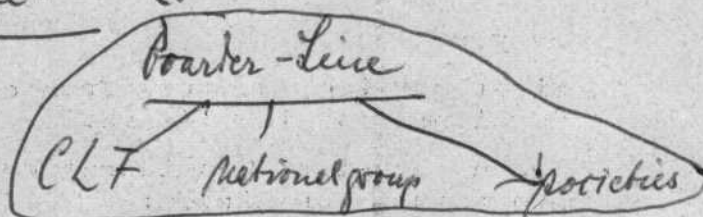 Boarder-Line
CLF national group societies